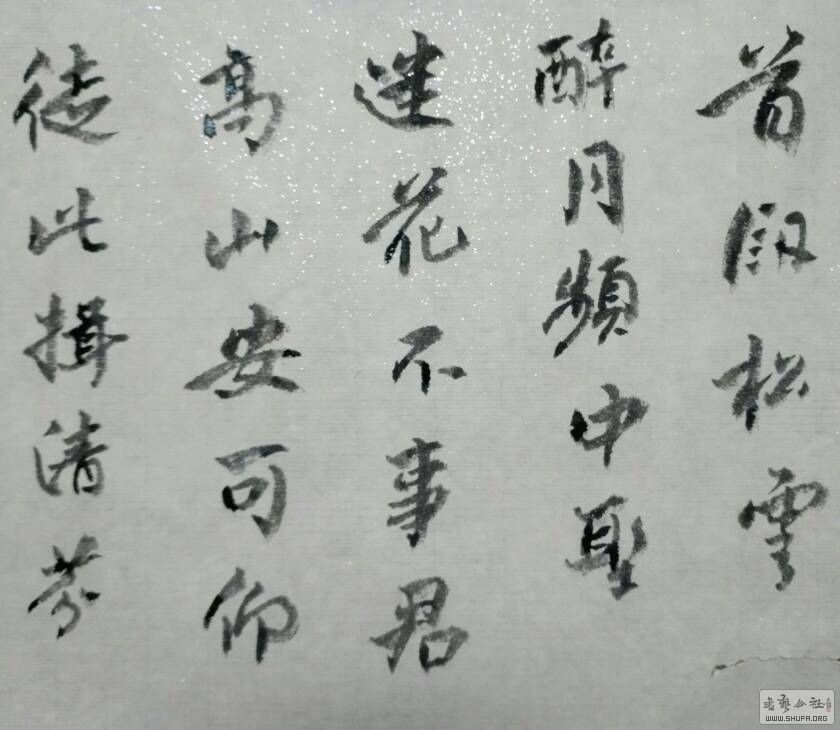 首臥松雲
醉月頻中聖
迷花不事君
高山安可仰
徒此揖清芬
書藝公社
WWW.SHUFA.ORG